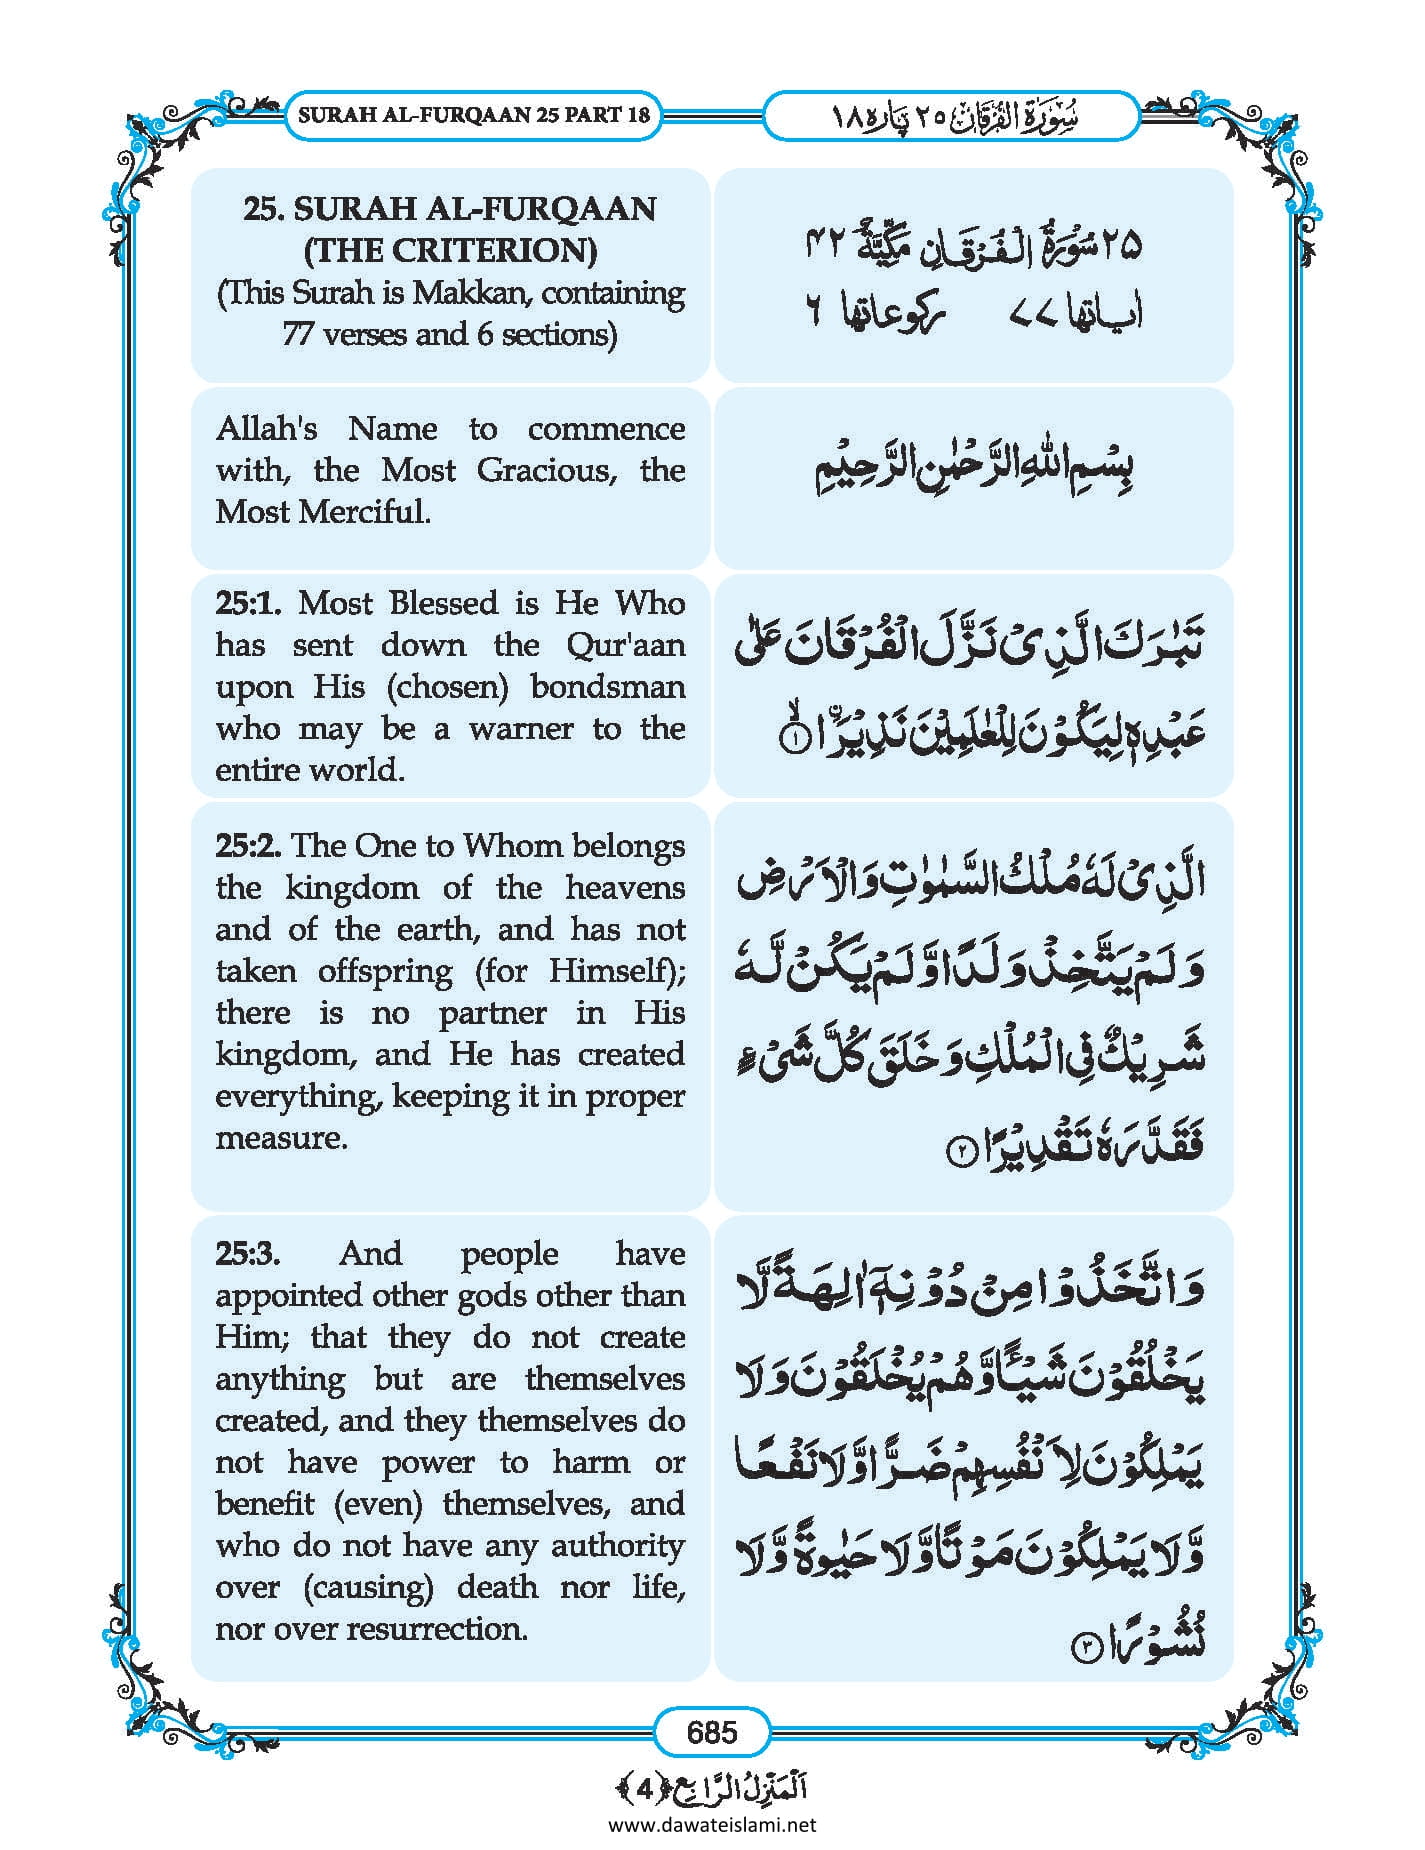 SURAH AL-FURQAAN 25 PART 18
سُوْرَةُ الْفُرْقَانْ ٢٥ پاره ١٨
25. SURAH AL-FURQAAN
(THE CRITERION)
(This Surah is Makkan, containing
77 verses and 6 sections)
٢٥ سُوْرَةُ الْفُرْقَانِ مَكِّيَّةٌ ٤٢
اياتها ٧٧ ركوعاتها ٦
Allah's Name to commence
with, the Most Gracious, the
Most Merciful.
بِسْمِ اللهِ الرَّحْمٰنِ الرَّحِيْمِ
25:1. Most Blessed is He Who
has sent down the Qur'aan
upon His (chosen) bondsman
who may be a warner to the
entire world.
تَبٰرَكَ الَّذِیْ نَزَّلَ الْفُرْقَانَ عَلٰی
عَبْدِهٖ لِیَكُوْنَ لِلْعٰلَمِیْنَ نَذِیْرَاۙ ﴿١﴾
25:2. The One to Whom belongs
the kingdom of the heavens
and of the earth, and has not
taken offspring (for Himself);
there is no partner in His
kingdom, and He has created
everything, keeping it in proper
measure.
الَّذِیْ لَهٗ مُلْكُ السَّمٰوٰتِ وَ الْاَرْضِ
وَ لَمْ یَتَّخِذْ وَلَدًا وَّ لَمْ یَكُنْ لَّهٗ
شَرِیْكٌ فِی الْمُلْكِ وَ خَلَقَ كُلَّ شَیْءٍ
فَقَدَّرَهٗ تَقْدِیْرًا ﴿٢﴾
25:3. And people have
appointed other gods other than
Him; that they do not create
anything but are themselves
created, and they themselves do
not have power to harm or
benefit (even) themselves, and
who do not have any authority
over (causing) death nor life,
nor over resurrection.
وَ اتَّخَذُوْا مِنْ دُوْنِهٖۤ اٰلِهَةً لَّا
یَخْلُقُوْنَ شَیْـًٔا وَّ هُمْ یُخْلَقُوْنَ وَ لَا
یَمْلِكُوْنَ لِاَنْفُسِهِمْ ضَرًّا وَّ لَا نَفْعًا
وَّ لَا یَمْلِكُوْنَ مَوْتًا وَّ لَا حَیٰوةً وَّ لَا
نُشُوْرًا ﴿٣﴾
685
اَلْمَنْزِلُ الرَّابِع ﴿4﴾
www.dawateislami.net